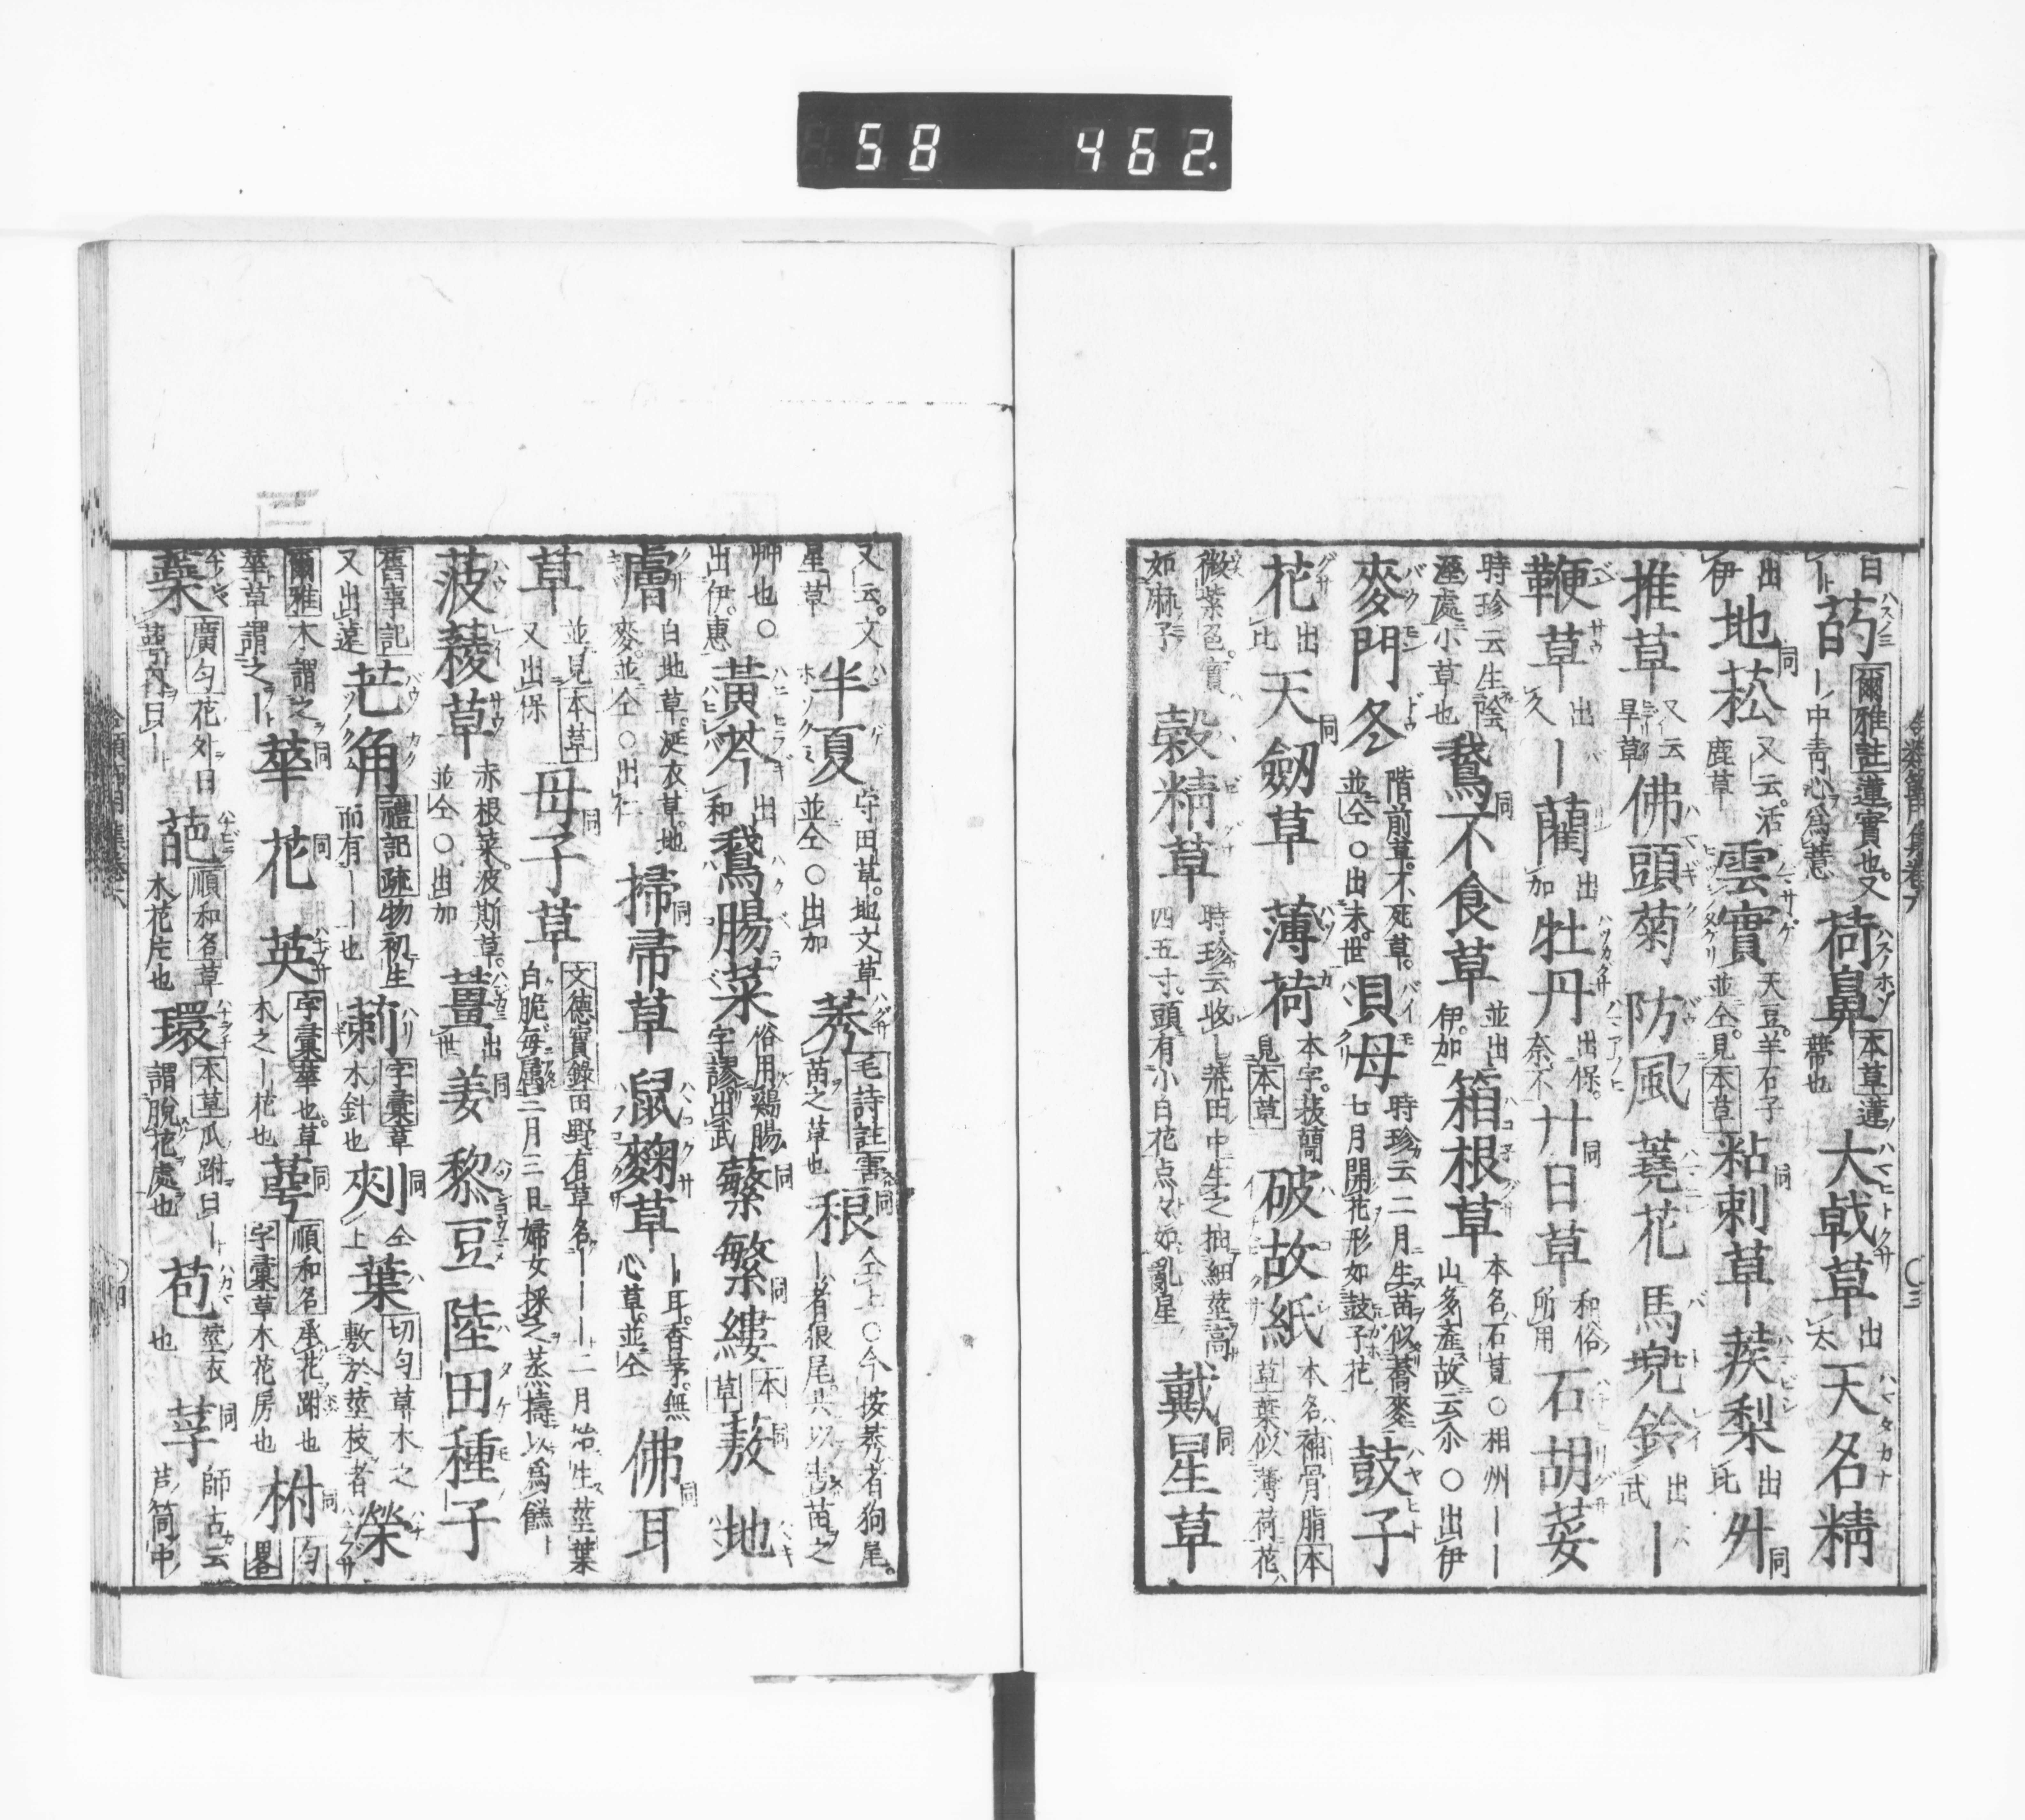 58 462.
白ト 菂 爾雅註蓮實也。又ー中青心爲薏 荷鼻 本草蓮蔕也 大戟草 出太 天名精
出伊 地菘 同 又云。活鹿草 雲實 天豆。羊石子並仝。見本草 粘刺草 同 蒺梨 出比 外 同
推草 又云旱草 佛頭菊 防風 蕘花 馬兜鈴 出武 ー
鞭草 出久 ー藺 出加 牡丹 出保。奈不 廿日草 同 和俗所用 石胡荽
時珍云生陰溼處小草也 鵞不食草 同 並出伊。加 箱根草 本名石莧○相州ーー山多産故云尒○出伊
麥門冬 階前草。不死草。並仝○出末。世 貝母 時珍云二月生苗似蕎麥七月開花形如鼓子花 鼓子
花 出比 天劒草 同 薄荷 本字。菝䕡見本草 破故紙 本名補骨脂本草葉似薄荷花
微紫色。實如麻子 穀精草 時珍云收ー荒田中生之抽細莖高四五寸。頭有小白花点々如亂星 戴星草 同
又云。文星草 半夏 守田草。地文草並仝○出加 莠 毛詩註害苗之草也 稂 同 仝上○今按莠者狗尾。ー者狼尾。共以害苗之
艸也。○出伊。惠 黃芩 出和 鵞腸菜 俗用鷄腸字謬。出武 蘩 同 蘩縷 同 本草 蔜 同 地
膚 白地草。涎衣草。地麥。並仝○出仁 掃帚草 同 鼠麴草 ー耳。香茅。無心草。並仝 佛耳 同
草 並見本草又出保 母子草 同 文德實錄田野有草名ーーー二月始生莖葉白脆每屬三月三日婦女採之蒸擣以爲餻ー
菠薐草 赤根菜。波斯草。並仝○出加 薑 出世 姜 同 黎豆 陸田種子
舊事記又出遠 芒角 禮記疏物初生而有ーー也 莿 字彙草木針也 刾 同 仝上 葉 切匀草木之敷於莖枝者 榮
爾雅木謂之ー華草謂之ー 華 同 花 同 英 字彙華也。草木之ー花也 萼 同 順和名承花跗也字彙草木花房也 柎 同 匀畧
蘂 廣匀花外曰萼內曰ー 葩 順和名草木花片也 環 本草瓜跗曰ー謂脫花處也 苞 莖衣也 莩 同 師古云葭筒中